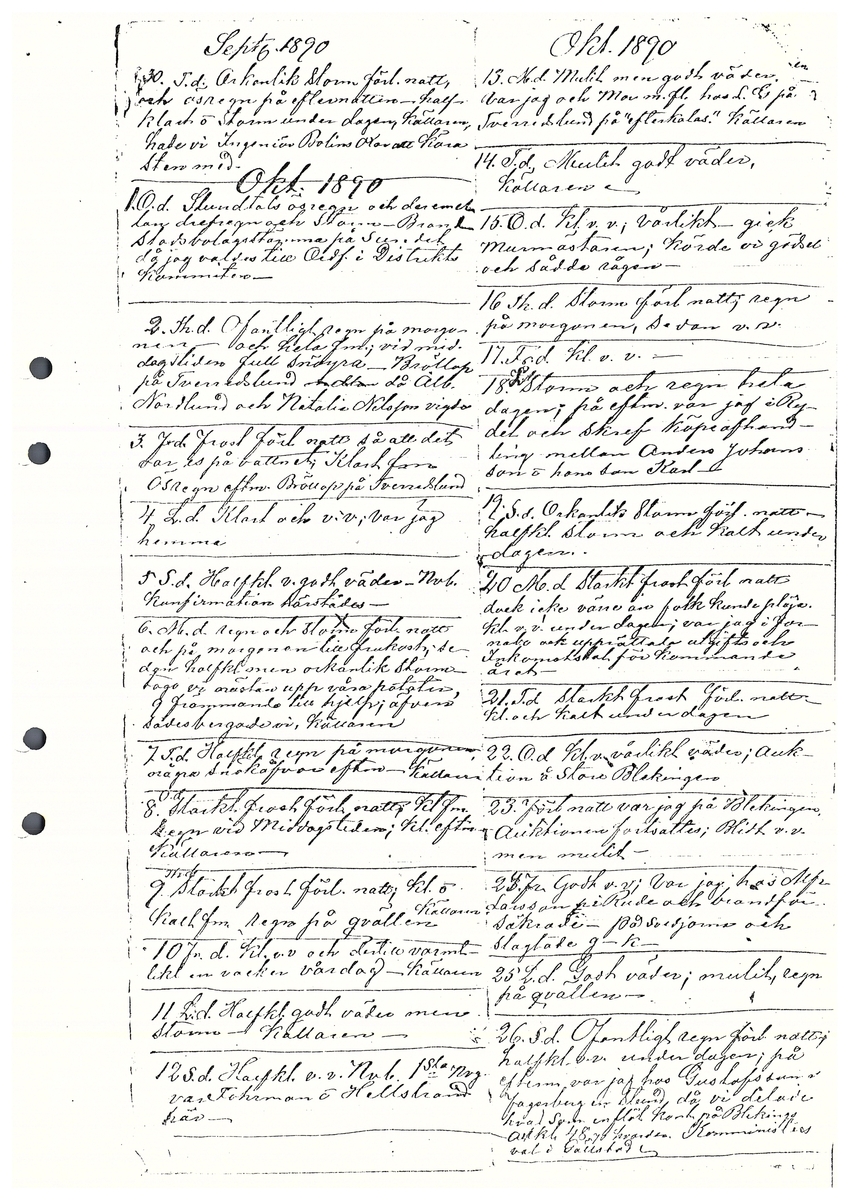 Septb. 1890
30. T.d. Orkanlik Storm förl. natt,
och ösregn på efternatten — half-
klart o Storm under dagen, Källaren,
hade vi Ingeniör Bolins Oxar att köra
Sten med.
Okt. 1890
1. O.d. Stundtals ösregn och deremel-
lan drefregn och Storm — Brand
Stodsbolagsstämma på Sun. det
då jag valdes till Ordf. i Distrikts
Kommiten —
2. Th.d. Ofantligt regn på morgo-
nen — och hela fm; vid mid.
dagstiden full snöyra — Bröllop
på Tverredslund då Alb.
Nordlund och Natalia Nilsson vigdes
3. Fr.d. Frost förl. natt så att det
var is på vattnet; Klart fm
Ösregn eftm. Bröllop på Tverredslund
4. L.d. Klart och v.v; var jag
hemma
5 S.d. Halfkl. v. godt väder — Nvb.
Konfirmation härstädes —
6. M.d. regn och Storm förl. natt
och på morgonen till frukost, se-
dan halfkl. men orkanlik Storm
togo vi nästan upp våra potater,
9 främmande till hjelp; äfven
sädesbergade vi, Källaren
7. T.d. Halfkl. regn på morgonen,
några snökåfvor eftm — Källaren
8. O.d. Starkt frost förl. natt; Kl. fm.
Regn vid Middagstiden; kl. eftm
Källaren —
9. Th.d. Starkt frost förl. natt; Kl. o
Kalt fm. regn på qvällen Källaren
10 Fr. d. Kl. v.v och dertill varmt
likt en vacker vårdag — Källaren
11 L.d. Halfkl. godt väder men
Storm — Källaren —
12 S.d. Halfkl. v. v. Nvb. 1sta
var Föhrman o Hellstrand
här —
Okt. 1890
13. M.d. Mulit men godt väder.
var jag och Mor m.fl. hos L. Es på
Tverredslund på "efterkalas." Källaren
14. T.d. Mulit godt väder,
Källaren —
15. O.d. Kl. v. v; vårlikt — gick
Murmästaren; körde vi gödsel
och sådde rågen —
16 Th. d. Storm förl. natt; regn
på morgonen, sedan v. v.
17. Fr.d. Kl. v. v. —
18. L.d. Storm och regn hela
dagen; på eftm. var jag i Ry-
det och skref köpeafhand-
ling mellan Anders Johans
son o hans son Karl —
19. S.d. Orkanlik Storm förl. natt —
halfkl. Storm och kalt under
dagen.
20 M.d Starkt frost förl. natt
dock icke värre än folk kunde plöja.
kl. v.v. under dagen; var jag i
och upprättade utgifts och
Inkomststat för kommande
året —
21. T.d Starkt frost förl. natt —
kl. och kalt under dagen
22. O.d Kl. v. vårlikt väder; Auk-
tion å Stora Blekingen
23. Förl. natt var jag på Blekingen,
Auktionen fortsattes; Blidt v.v.
men mulit —
24. Fr. Godt v.v; var jag hos Alfr.
Larsson i Rude och brandför-
säkrade — och
slagtade g — k —
25 L.d. Godt väder; mulit, regn
på qvällen —
26. S.d. Ofantligt regn förl. natt;
halfkl. v.v. under dagen; på
efterm. var jag hos Gustafsson o
Fagerberg i Lund, då vi delade
hvad som inflöt kont. på Blekings
Auktk. hvardera. Komminister
val i Gällstad